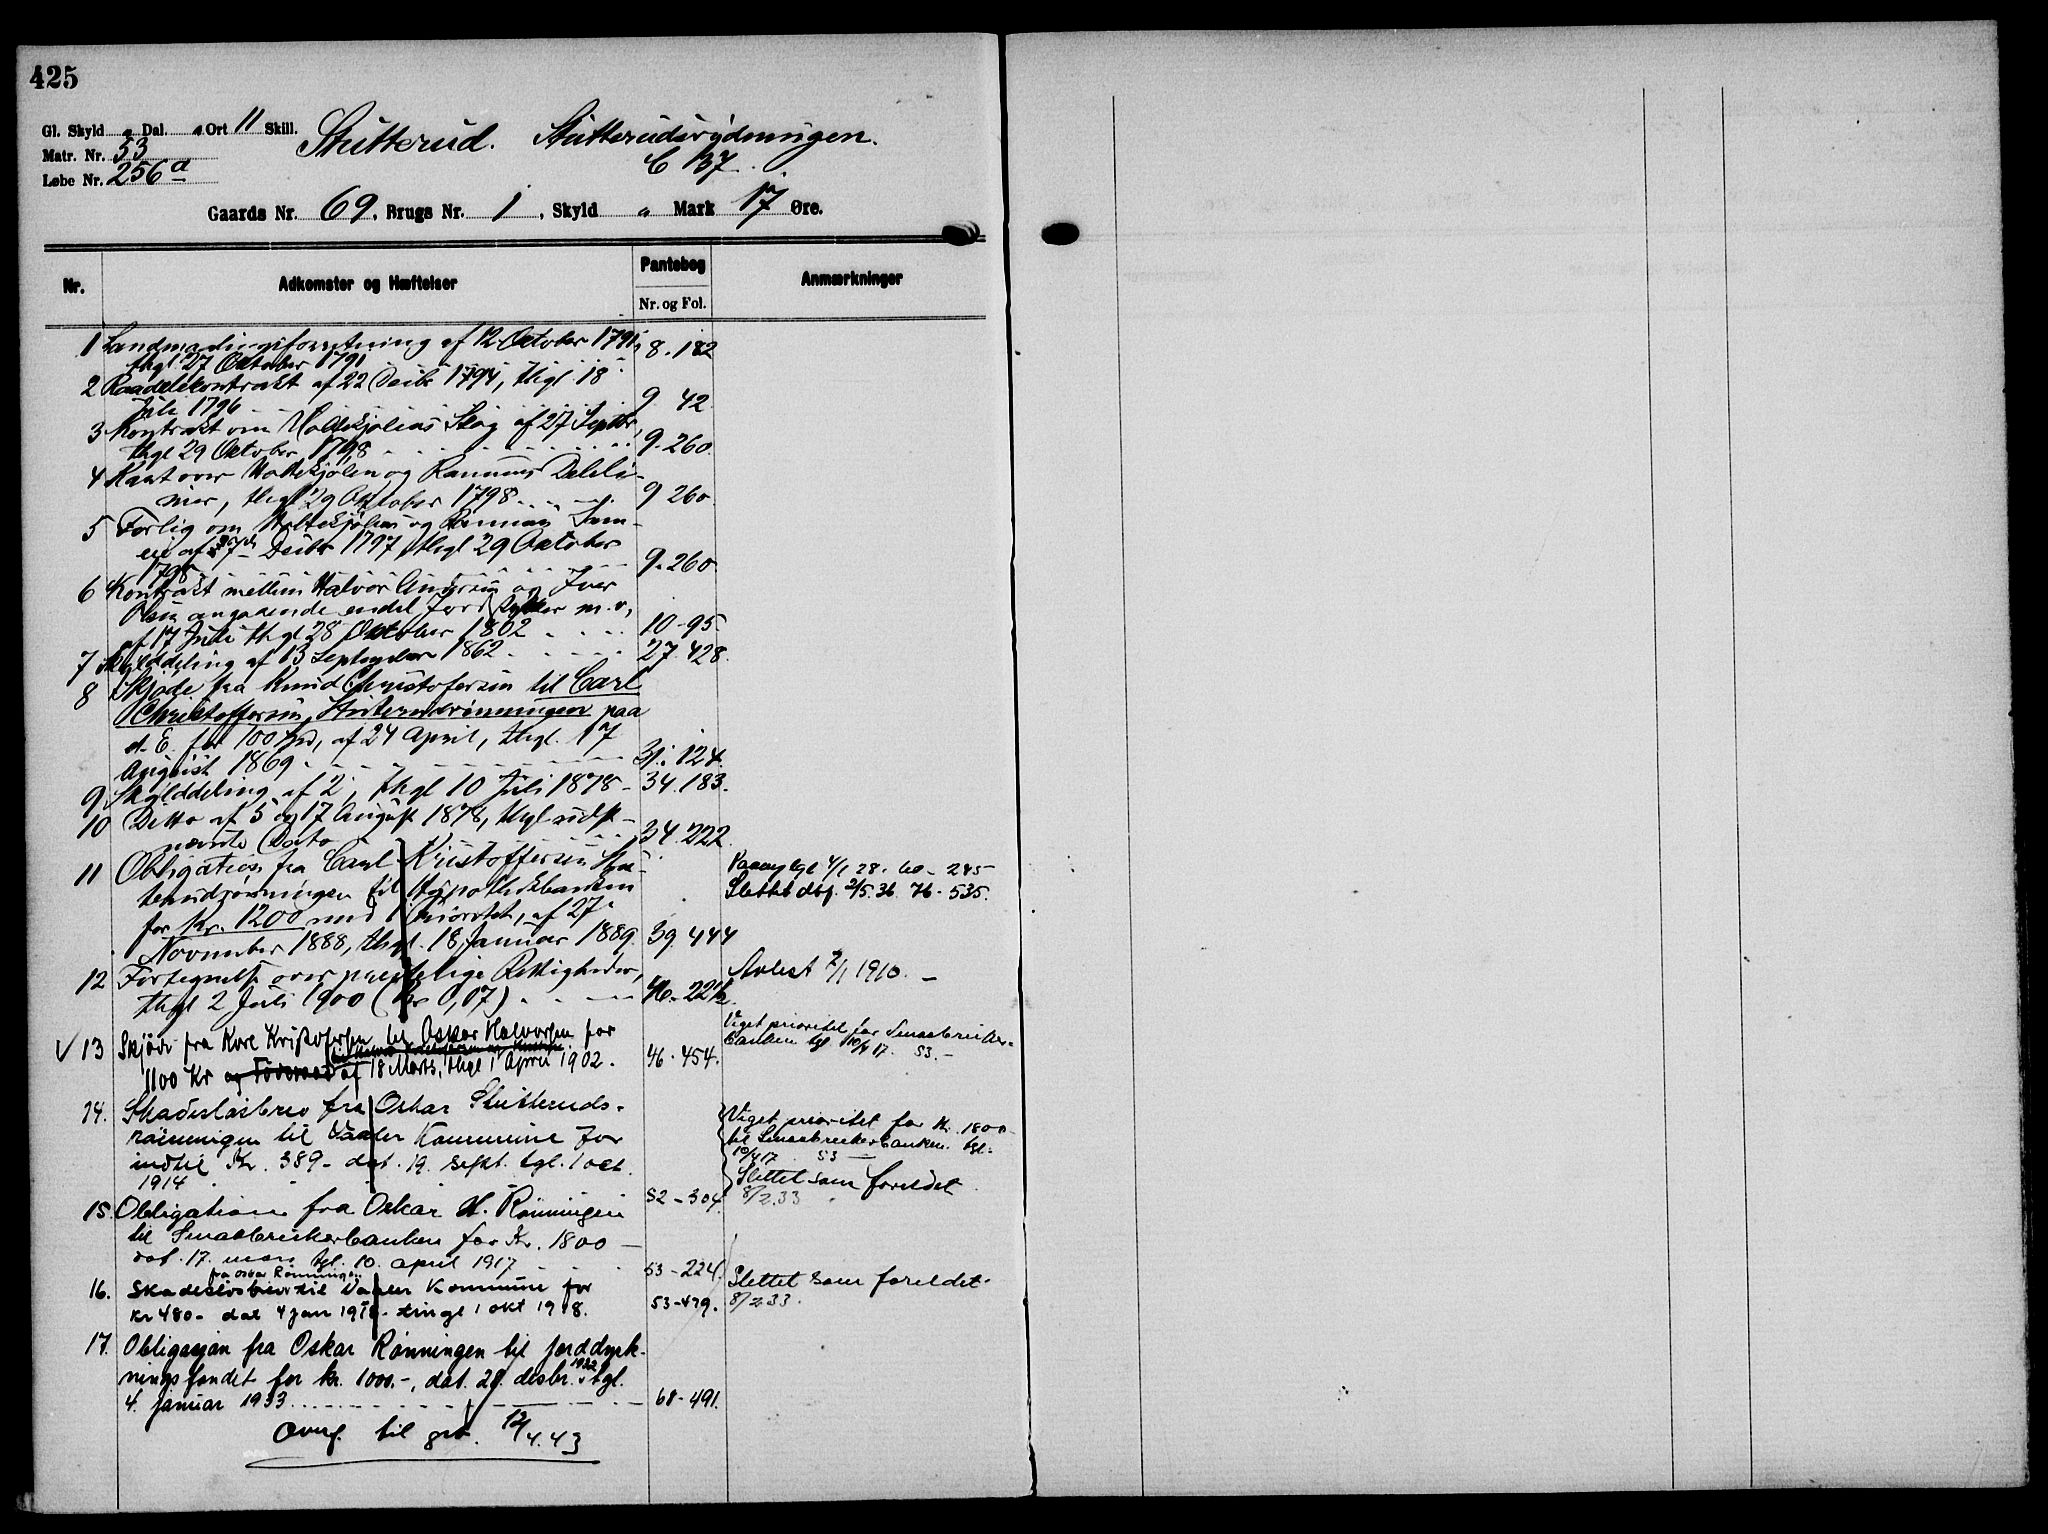 425
Gl. Skyld „ Dal. „ Ort 11 Skill.
Matr. Nr. 53
Løbe Nr. 256 a
Stutterud. Stutterudsrydningen.
C 137.
Gaards Nr. 69, Brugs Nr. 1, Skyld „ Mark 17 Øre.
Nr. Adkomster og Hæftelser Pantebog Anmærkninger
Nr. og Fol.
1 Landmaalingsforretning af 12 Oktober 1791, 8. 182
thgl. 27 Oktober 1791
2 Raadelekontrakt af 22 Decbr 1794, thgl. 18
Juli 1796 9 42.
3 Kontrakt om Holtesjølens Skog af 27 Septbr,
thgl 29 Oktober 1798 9. 260.
4 Kart over Holtesjølen og Deleli-
nier, thgl 29 Oktober 1798 9 260.
5 Forlig om og Sam-
eie af Decbr 1797, thgl 29 Oktober
1798 9. 260.
6 Kontrakt mellem Halvor og Iver
Olsen angaaende endel Jordstykker m. v,
af 17 Juli thgl 28 Oktober 1802 10-95.
7 Skylddeling af 13 September 1862 27. 428.
8 Skjøde fra Knud Christofersen til Carl
Christoffersen, paa
d. E. for 100 Spd, af 24 April, thgl. 17
August 1869 31. 124.
9 Skylddeling af 2, thgl 10 Juli 1878 34. 183.
10 Ditto af 5 og 17 August 1878, thgl sidst-
nævnte Dato 34. 222.
11 Obligation fra Carl Kristoffersen Stu-
terudrønningen til Hypothekbanken
for Kr. 1200 med 1 Prioritet, af 27
November 1888, thgl. 18 Januar 1889. 39. 444
4/1 28. 60 - 245
Slettet 2/5.36. 76 - 535.
12 Fortegnelse over Rettigheder,
thgl 2 Juli 1900 (Kr 0,07) 46-
Avløst 7/1 1910.
√ 13 Skjøde fra Karl Kristofersen til Oskar Halvorsen for
1100 Kr og Føderaad af 18 Marts, thgl 1 April 1902. 46. 454.
Veget prioritet for Smaabruker-
banken tgl 10/4 17. 53. -
14. Skadesløsbrev fra Oskar Stutteruds-
rønningen til Vaaler Kommune for
indtil Kr. 389 - dat. 19. sept. tgl. 1 oct.
1914 52 - 304.
Veget prioritet for Kr. 1800
til Smaabrukerbanken. tgl.
10/4 17 53 -
Slettet som foreldet
8/2.33
15. Obligation fra Oskar H. Rønningen
til Smaabrukerbanken for Kr. 1800 -
dat. 17. mars tgl. 10. april 1917 53 - 224.
fra Oskar Rønningen
16. Skadesløsbrev til Vaaler Kommune for
kr 480 - dat 4 jan 1918 - tingl 1 okt 1918. 53-479.
Slettet som foreldet.
8/2 33.
17. Obligasjon fra Oskar Rønningen til jorddyrk-
ningsfondet for kr. 1000.-, dat. 28. desbr. 1932 tgl.
4. januar 1933 68 - 491.
Overf. til grb. 12/4.43